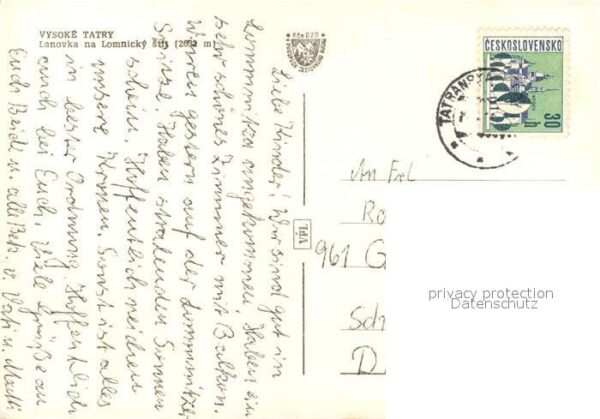 VYSOKÉ TATRY
Lanovka na Lomnický štít (2632 m)
Kčs 0,70
ČESKOSLOVENSKO
30
h
TATRANSKÁ
Liebe Kinder! Wir sind gut in
Lommnika angekommen. Haben ein
sehr schönes Zimmer mit Balkon.
Waren gestern auf der Lommnitzer
Spitze. Haben stralenden Sonnen
schein. Hoffentlich reichen
unsere Kronen. Sonst ist alles
in bester Ordnung. Hoffentlich
auch bei Euch. Viele Grüße an
Euch Beide u. alle Bek. v. Vati u. Mutti
An Frl
Ro
961 G
Sch
D
privacy protection
Datenschutz